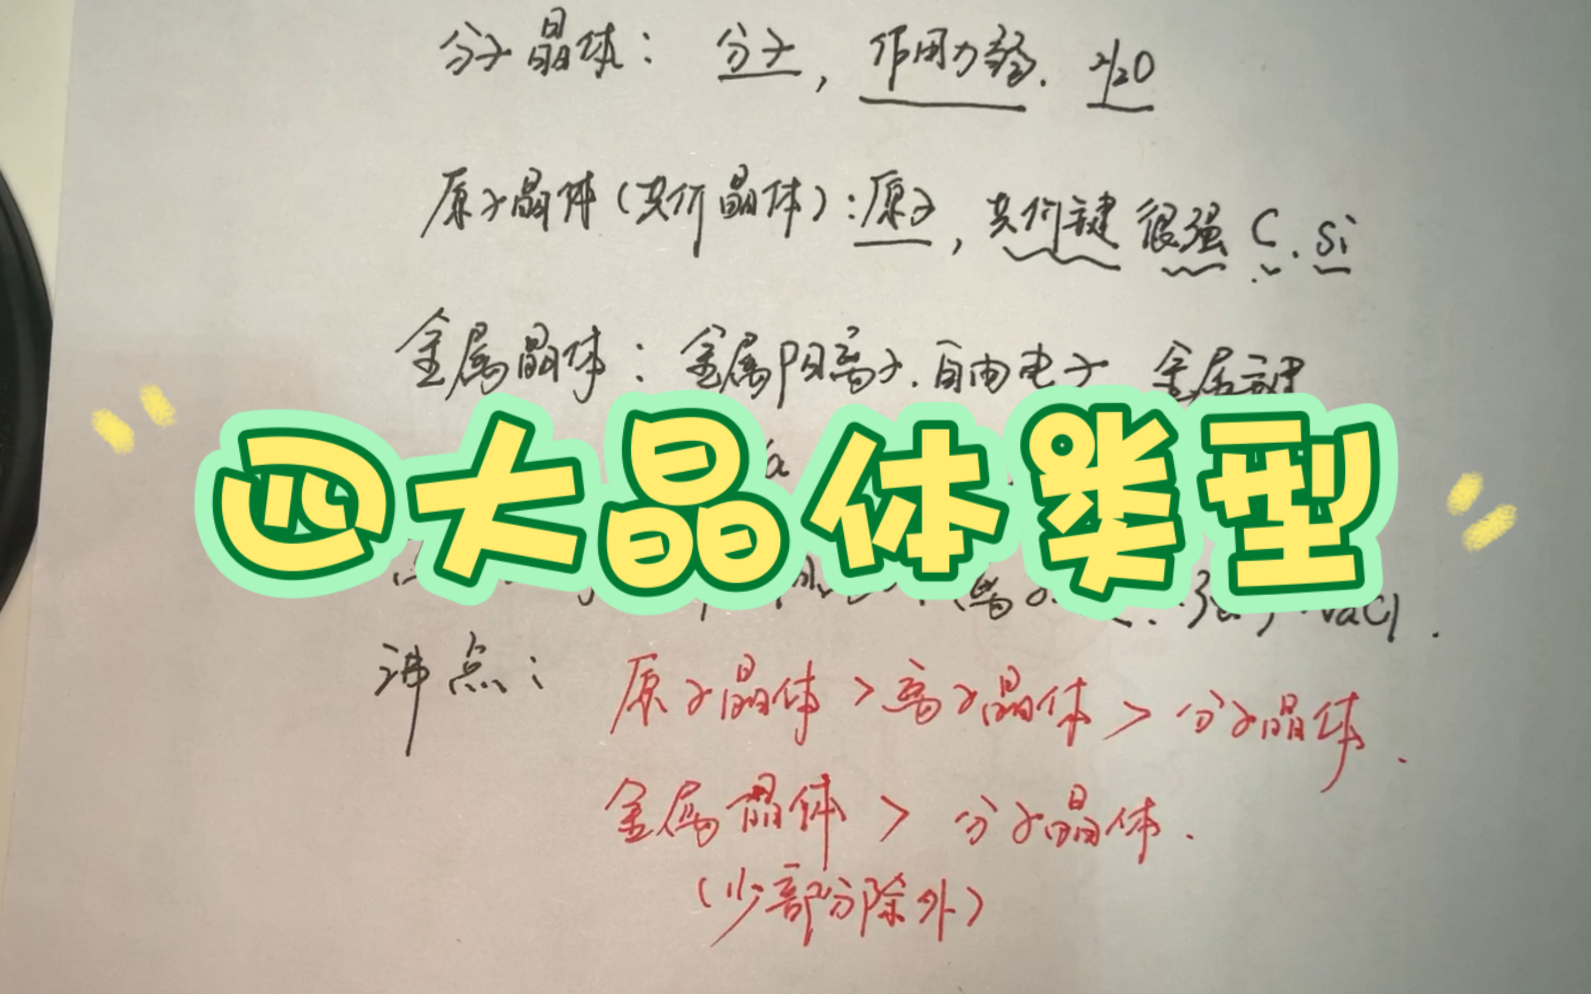 分子晶体：分子，作用力弱. H2O
原子晶体(共价晶体)：原子，共价键很强 C. Si
金属晶体：金属阳离子.自由电子 金属键
四大晶体类型
NaCl.
沸点：原子晶体>离子晶体>分子晶体.
金属晶体>分子晶体.
(少部分除外)